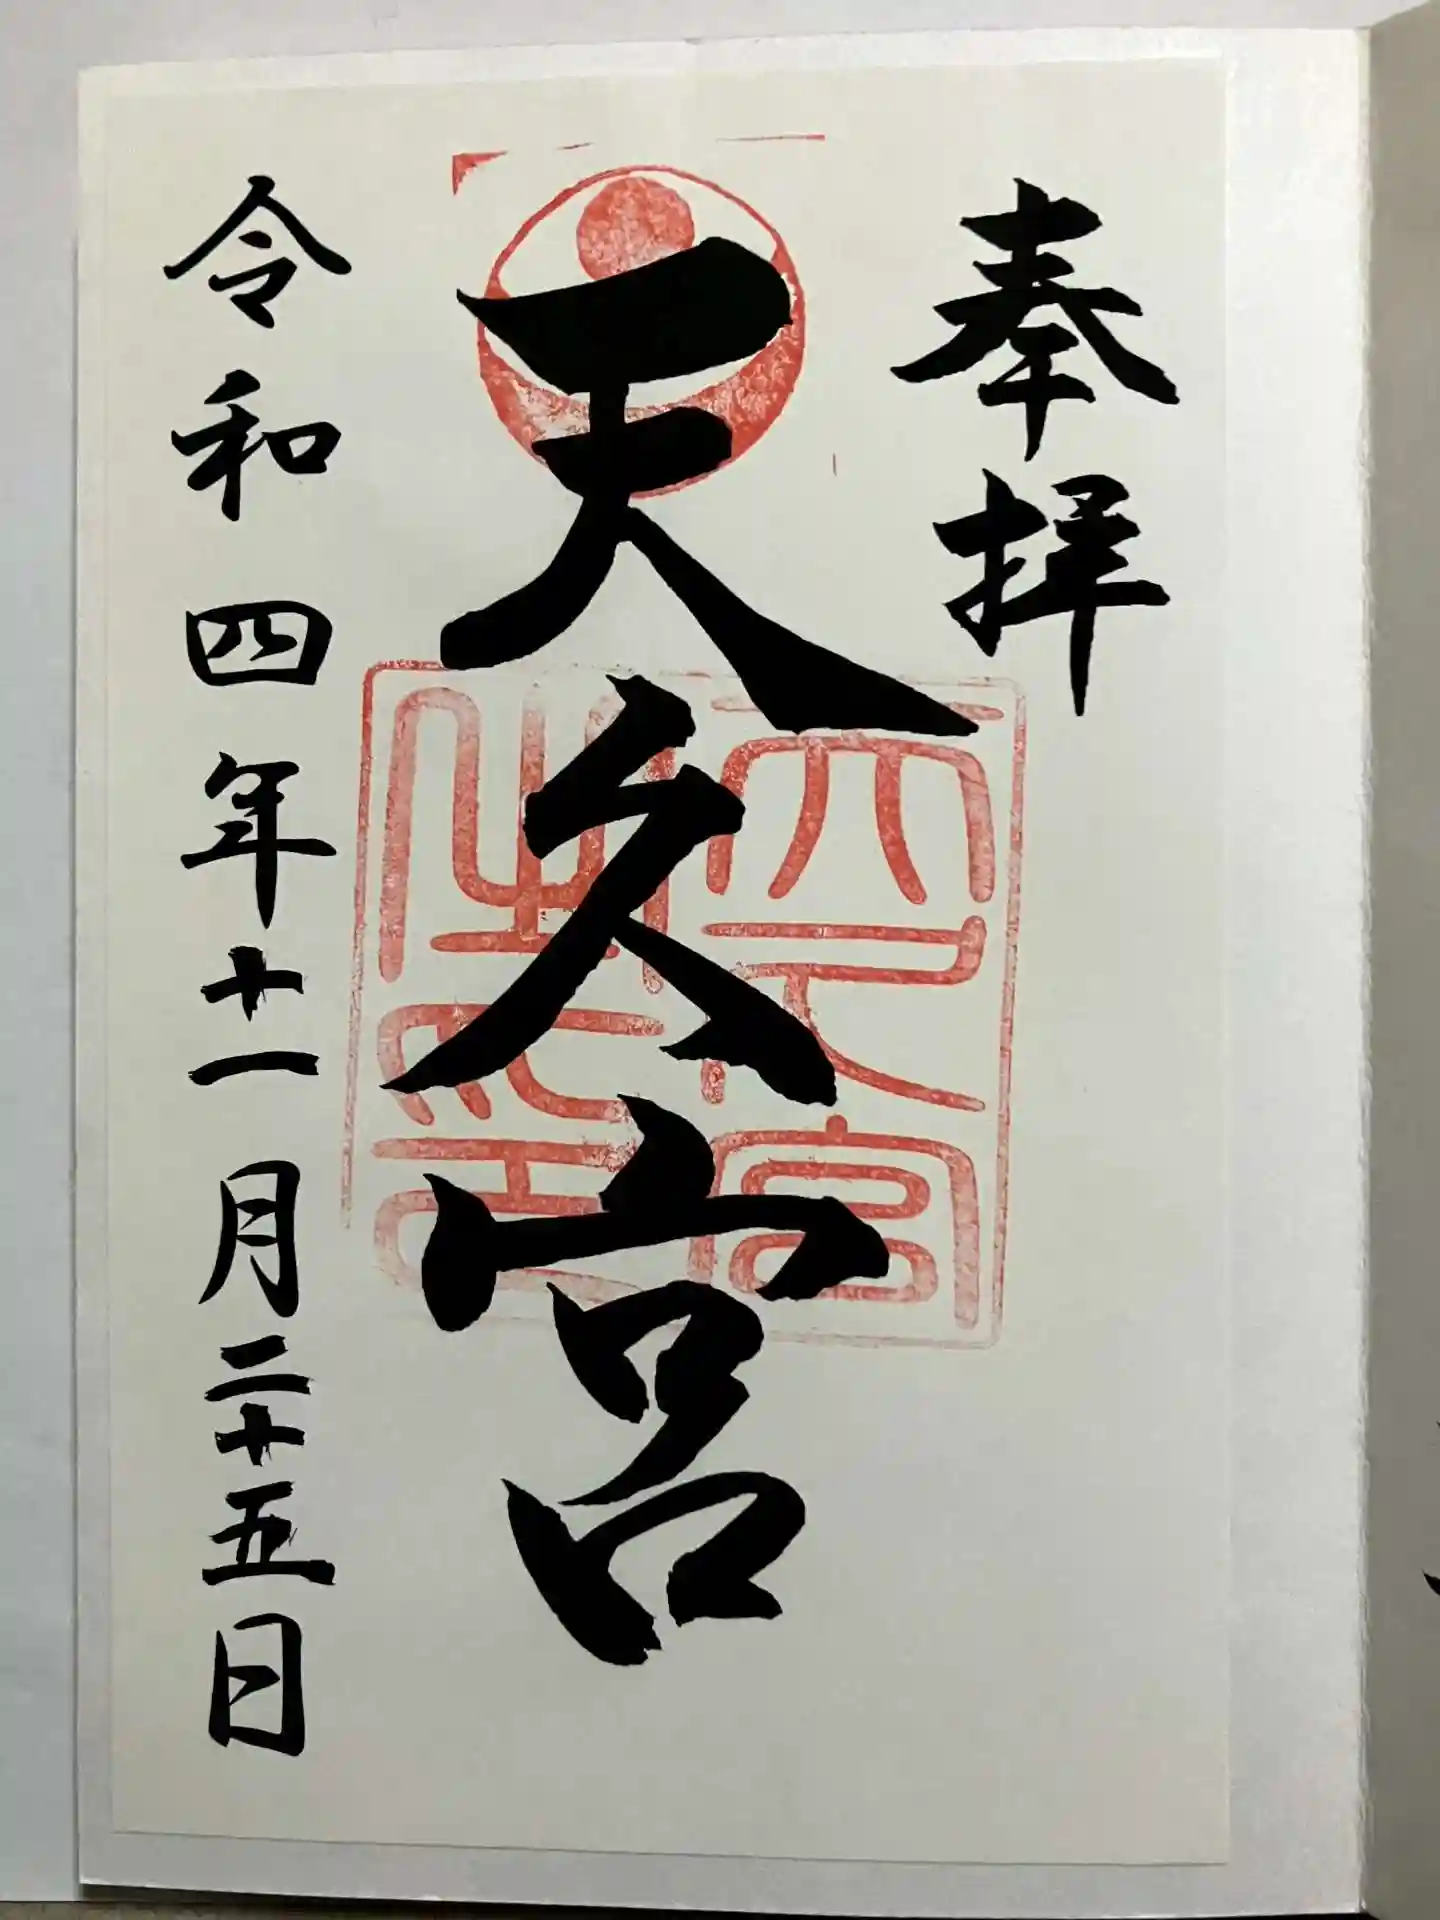 奉拝
天久宮
令和四年十一月二十五日